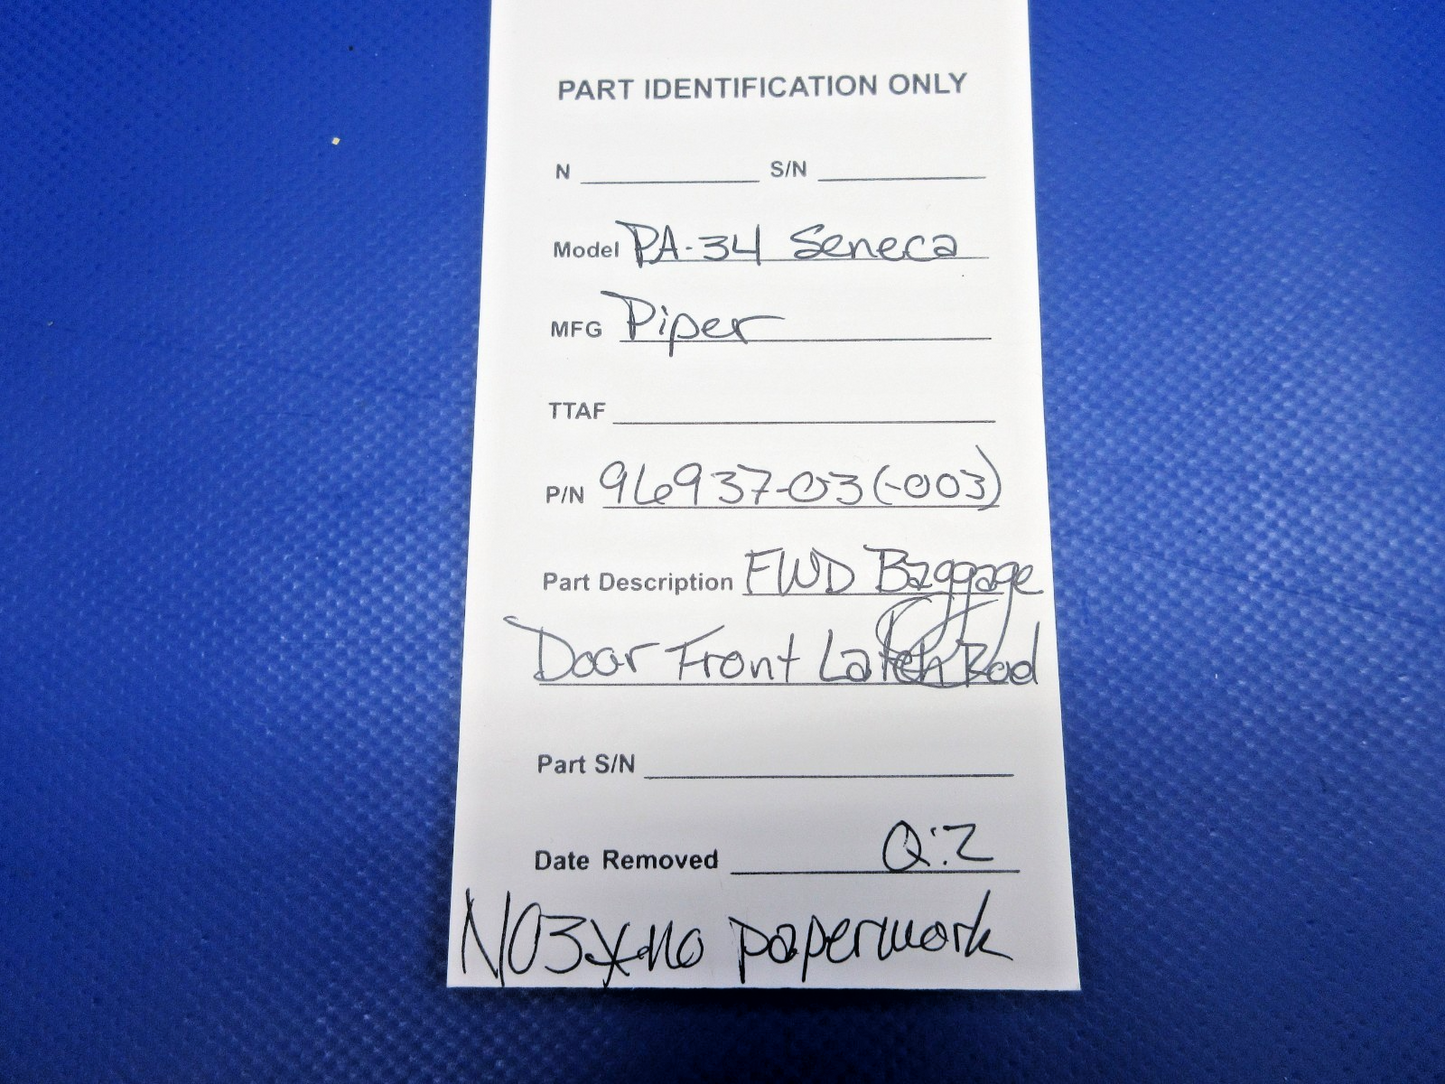 PART IDENTIFICATION ONLY
N S/N
Model PA-34 Seneca
MFG Piper
TTAF
P/N 96937-03 (-003)
Part Description FWD Baggage
Door Front Latch Rod
Part S/N
Date Removed Q:2
NO3X-no paperwork